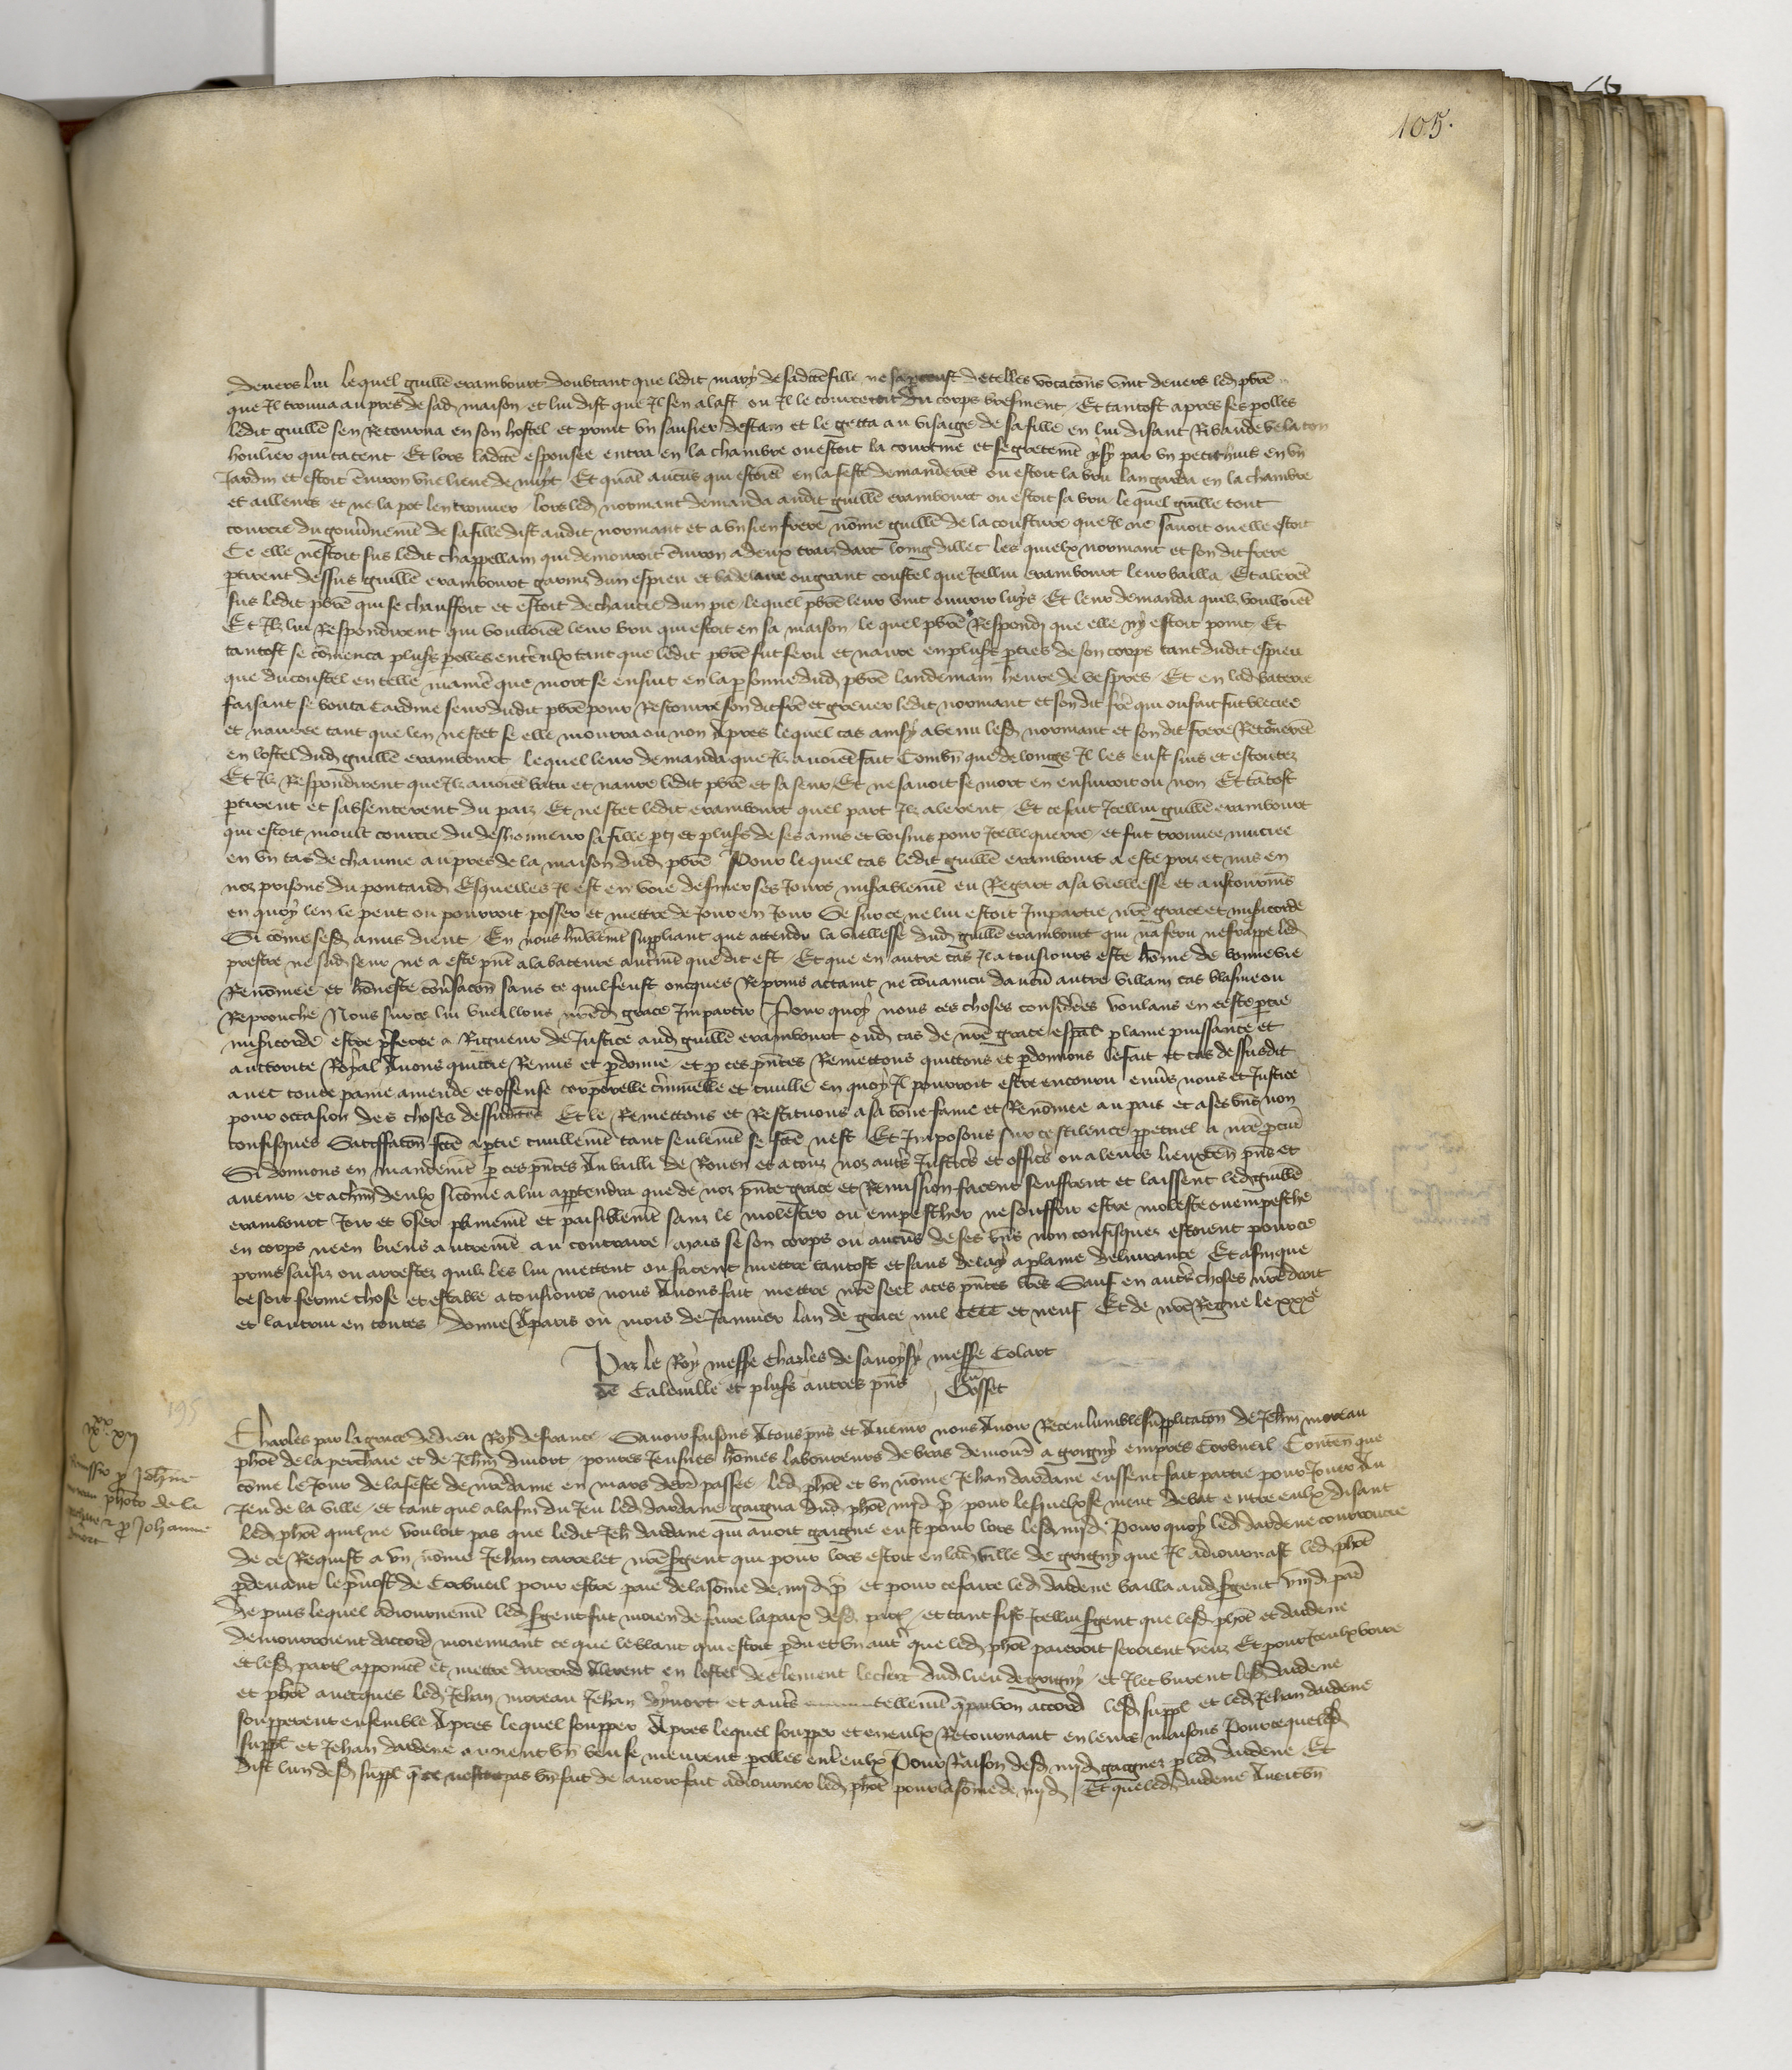 105.
devers lui lequel guille erambourt doubtant que ledit mary de sadicte fille ne sapparceust de telles vocacons vint devers led pbre
que Il trouva au pres de sad maison et lui dist que Il sen alast ou Il le courceroit du corps briefment Et tantost apres ses polles
ledit guille sen Retourna en son hostel et print vn sausier destain et le getta au visaige de sa fille en lui disant Ribaude vela ton
houlier qui tatent Et lors ladicte espousee entra en la chambre ou estoit la courtine et segretement yssy par vn petit huis en vn
Jardin et estoit environ vne lieue de nuyt Et quant aucuns qui estoient en la feste demanderent ou estoit la bru lan garda en la chambre
et ailleurs et ne la pot len trouver lors led normant demanda audit guille erambourt ou estoit sa bru lequel guille tout
courcie du gouvernement de sa fille dist audit normant et a vn sien frere nome guille de la cousture que Il ne savoit ou elle estoit
Ce elle nestoit sus ledit chappellain qui demouroit environ a deux traiz darc loing dillec les quielx normant et son dit frere
ptirent dessus guille erambourt garniz dun espieu et badelaire ou grant coustel que Icellui erambourt leur bailla Et alerent
sus ledit pbre qui se chauffoit et estoit dechaucie dun pie lequel pbre leur vint ouvrir luys Et leur demanda quilz vouloient
Et Ilz lui Respondirent qui vouloient leur bru qui estoit en sa maison lequel pbre Respondi que elle ny estoit point Et
tantost se comenca plus polles entreulx tant que ledit pbre fut feru et navre en plus pties de son corps tant dudit espieu
que du coustel en telle maniere que mort se ensuit en la personne dud pbre landemain heure de vespres Et en lad baterie
faisant se bouta Cardine seur dudit pbre pour Rescourre son dit frere et grever ledit normant et son dit frere qui ou fait fut bleciee
et navree tant que len ne scet se elle mourra ou non Apres lequel cas ainsy avenu lesd normant et son dit frere Retournerent
en lostel dud guille erambourt lequel leur demanda que Ilz avoient fait Combien que de loings Il les eust suis et escoutez
Et Ilz Respondirent que Ilz avoient batu et navre ledit pbre et sa seur Et ne savoit se mort en ensuivroit ou non Et tantost
ptirent et sabsenterent du pais Et ne scet ledit erambourt quel part Ilz alerent Et ce fait Icellui guille erambourt
qui estoit moult courcie du deshonneur sa fille pti et plus de ses amis et voisins pour Icelle querre et fut trouvee muciee
en vn tas de chaume au pres de la maison dud pbre Pour lequel cas ledit guille erambourt a este pris et mis en
noz prisons du pontaud Esquelles Il est en voie de finer ses Jours miserablement eu Regart a sa viellesse et aux tourmens
en quoy len le peut ou pourroit posser et mettre de Jour en Jour Se sur ce ne lui estoit Impartie nre grace et misericorde
Si come sesd amis dient En nous humblement suppliant que attendu la viellesse dud guille erambourt qui na feru ne frappe led
prestre ne sad seur ne a este pnt a la bateure autrement que dit est Et que en autre cas Il a tousiours este home de bonne vie
Renomee et honeste conversacon sans ce quil feust oncques Reprins attaint ne convaincu daucun autre villain cas blasme ou
Reprouche Nous sur ce lui vueillons nred grace Impartir Pour quoy nous ces choses considerees voulans en ceste ptie
misericorde estre preferee a Rigueur de Justice aud guille erambourt oud cas de nre grace especial plaine puissance et
auctorite Royal Avons quictie Remis et pdonne et p ces pntes Remettons quittons et pdonnons le fait et cas dessusdit
avec toute paine amende et offense corporelle criminelle et civille en quoy Il pourroit estre encouru envers nous et Justice
pour occasion des choses dessusdictes Et le Remettons et Restituons a sa bone fame et Renomee au pais et a ses biens non
confisquez Satisfaction fcte a ptie civillement tant seulement se fcte nest Et Imposons sur ce scilence ppetuel a nre procur
Si donnons en mandement p ces pntes Au bailli de Rouen et a touz noz autres Justiciers et officiers ou a leurs lieuxtens pns et
avenir et a chun deulx si come a lui apptendra que de noz pnte grace et Remission facent seuffrent et laissent led guille
erambourt Joir et vser plainement et paisiblement sanz le molester ou empescher ne souffrir estre moleste ou empesche
en corps ne en biens autrement au contraire mais se son corps ou aucuns de ses biens non confisquez estoient pour ce
prins saisiz ou arrestez quilz les lui mettent ou facent mettre tantost et sans delay a plaine delivrance Et afin que
ce soit ferme chose et estable a tousiours nous Avons fait mettre nre seel a ces pntes lres Sauf en autres choses nre droit
et lautrui en toutes donne A paris ou mois de Janvier lan de grace mil CCCC et neuf Et de nre Regne le xxxe
Par le Roy messe Charles de savoysy messe Colart
de Caleville et plus autres pns Gosset
195
Charles par la grace de dieu Roy de france Savoir faisons A tous pns et Avenir nous Avoir Receu lumble supplicacon de Jehan moreau
phot de la percheie et de Jehan divort povres Jeunes homes laboureurs de bras demour a grigny empres Corbueil Contenant que
come le Jour de la feste de nredame en mars derr passee led phot et vn nome Jehan dardaine eussent fait partie pour Jouer Au
Jeu de la bille et tant que a la fin du Jeu led dardaine gaigna dud phot iiij d p pour lesquelx se meut debat entre eulx disant
led phot quil ne vouloit pas que ledit Jeh dardaine qui avoit gaigne eust pour lors lesd iiij d Pour quoy led dardene courroucie
de ce Requist a vn nome Jehan carrelet nre sergent qui pour lors estoit en lad ville de grigny que Il adiournast led phot
pdevant le prevost de Corbueil pour estre paie de la some de iiij d p et pour ce faire led dardene bailla aud sergent viij d par
de puis lequel adiournement led sergent fut moien de faire la paix desd parties et tant fist Icellui sergent que lesd phot et dardene
demourroient daccord moiennant ce que le blanc qui estoit pdu et vn autre que led phot paieroit seroient beuz Et pour Iceulx boire
et lesd parties appointier et mettre daccord Alerent en lostel de Clement leclerc dud lieu de grigny et Ilec burent lesd dardene
et phot avecques led Jehan moreau Jehan divort et autres tellement que par bon accord lesd suppl et led Jehan dardene
soupperent ensemble Apres lequel soupper Apres lequel soupper et en eulx Retournant en leurs maisons Pour ce que lesd
suppl et Jehan dardene avoient bien beu se meurent polles entreulx Pour Raison desd iiij d gaignez p led dardene Et
dist lun desd suppl que ce nestoit pas bien fait de avoir fait adiourner led phot pour la some de iiij d Et que led dardene Avoit bn
Remissio p Johanne
moreau photo de la
p Johanne
divort